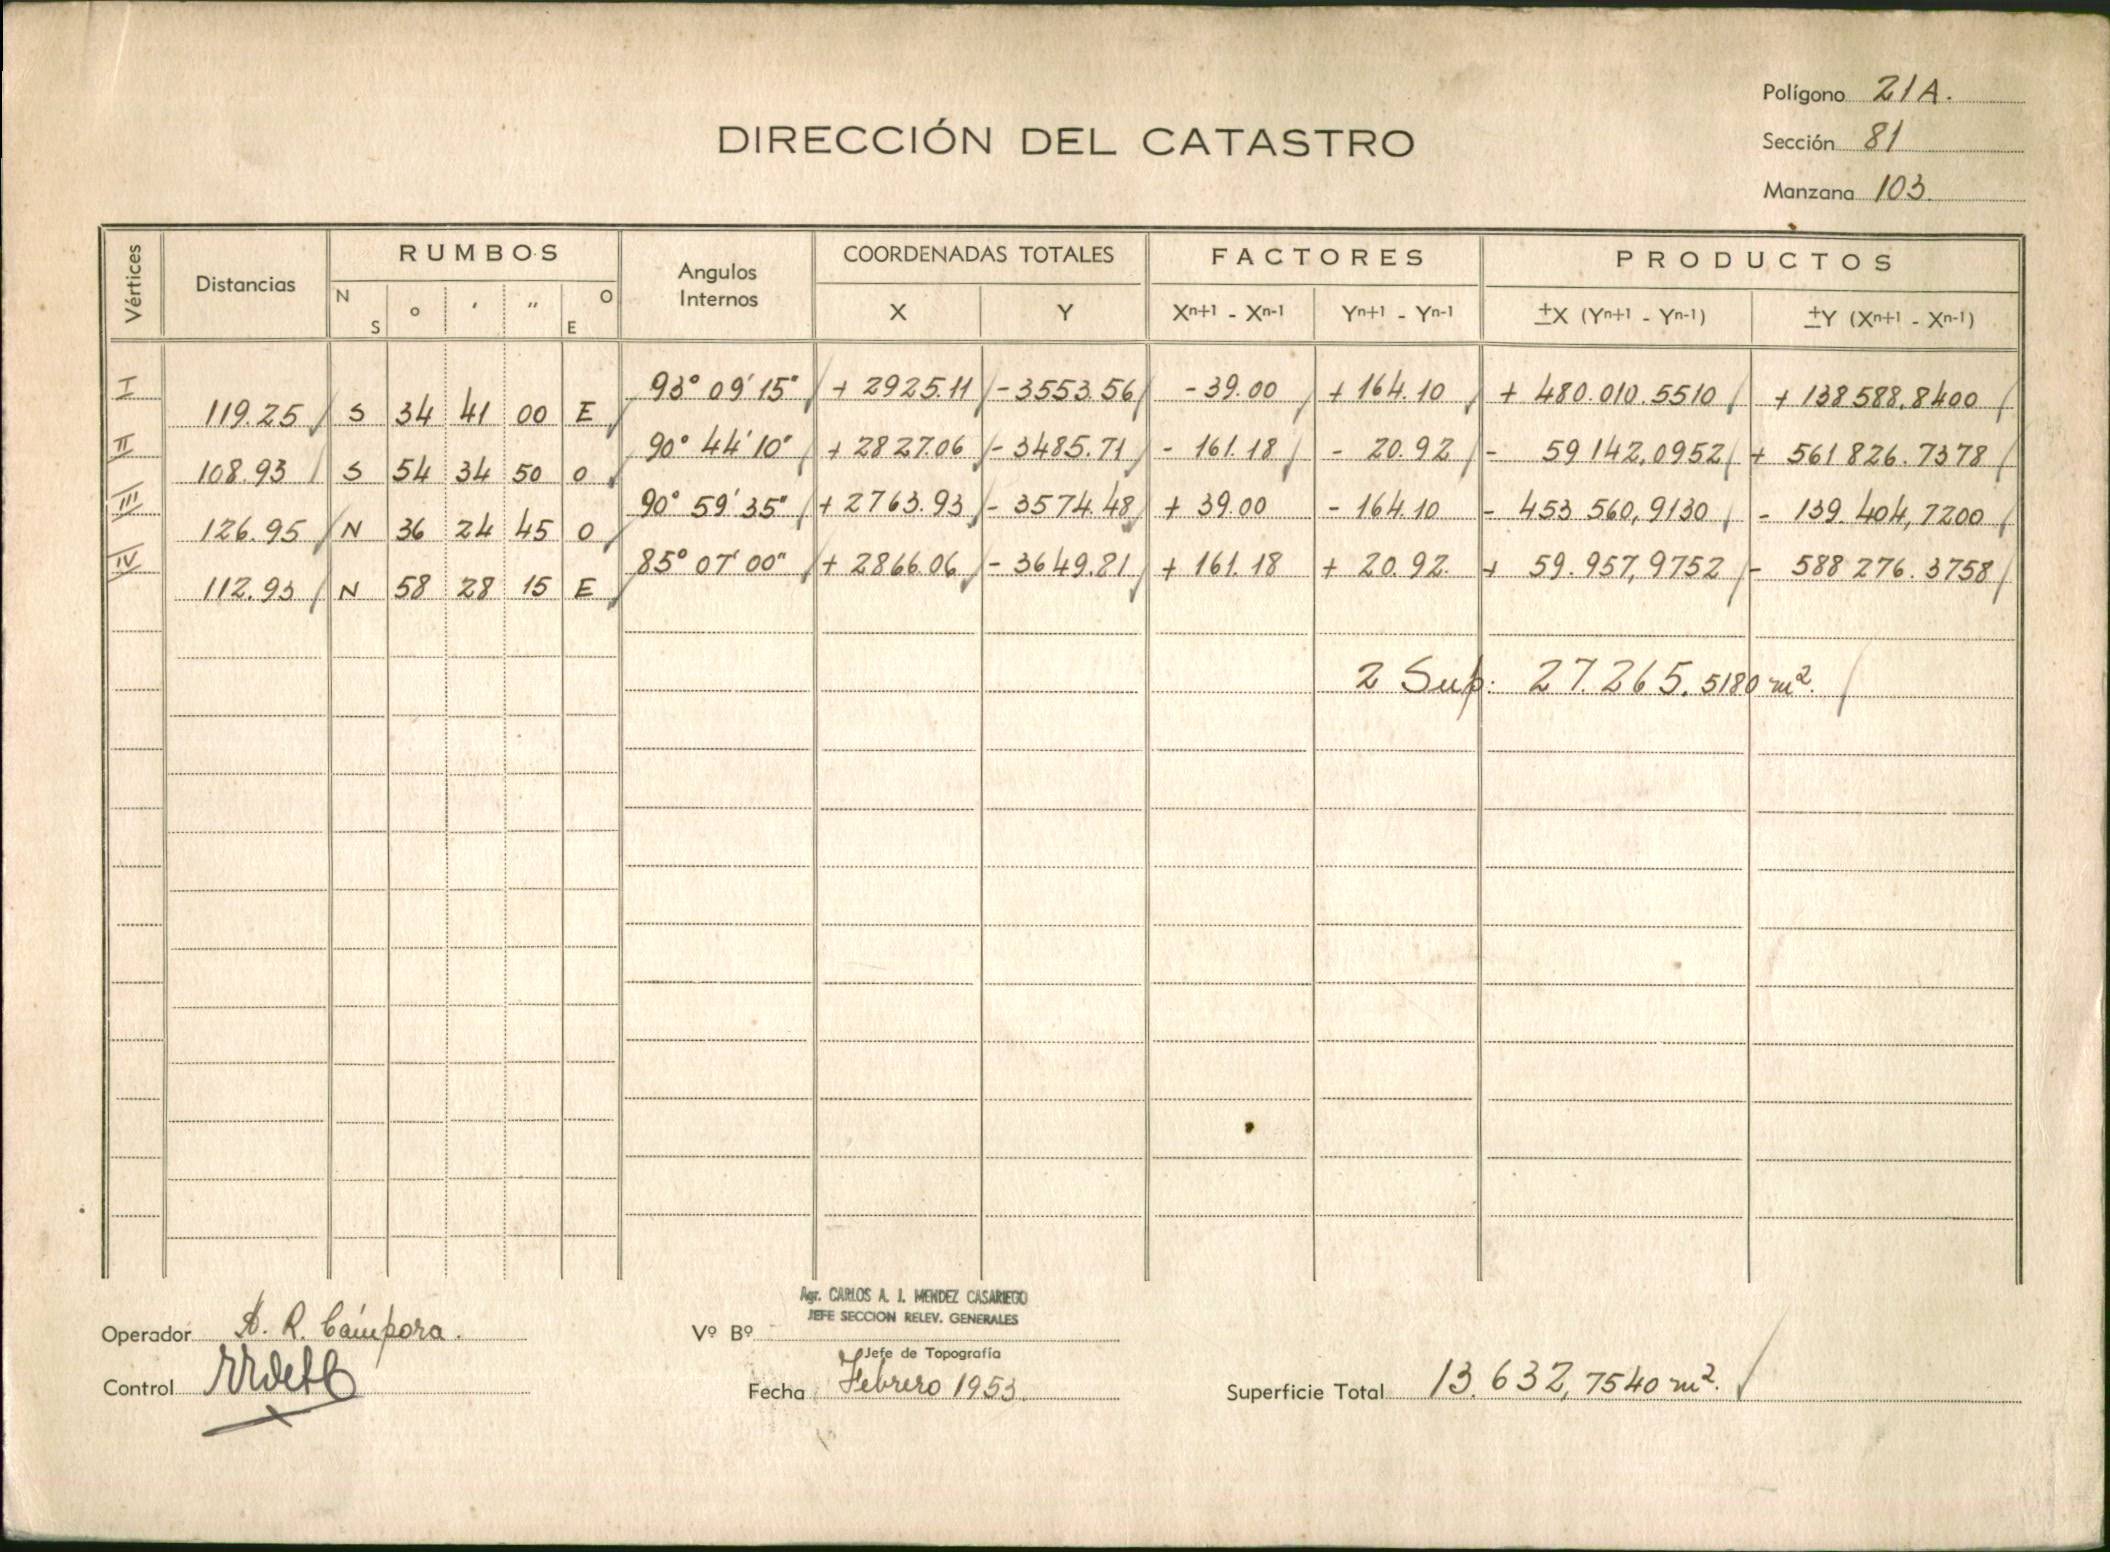 Polígono 21A.
DIRECCIÓN DEL CATASTRO
Sección 81
Manzana 103.
Vértices Distancias RUMBOS Angulos Internos COORDENADAS TOTALES FACTORES PRODUCTOS
N S ° ' " O E X Y Xn+1 - Xn-1 Yn+1 - Yn-1 ±X (Yn+1 - Yn-1) ±Y (Xn+1 - Xn-1)
I 93° 09' 15" + 2925.11 - 3553.56 - 39.00 + 164.10 + 480.010.5510 + 138588,8400
119.25 S 34 41 00 E
II 90° 44' 10" + 2827.06 - 3485.71 - 161.18 - 20.92 - 59142,0952 + 561826.7378
108.93 S 54 34 50 O
III 90° 59' 35" + 2763.93 - 3574.48 + 39.00 - 164.10 - 453560,9130 - 139.404,7200
126.95 N 36 24 45 O
IV 85° 07' 00" + 2866.06 - 3649.81 + 161.18 + 20.92. + 59.957,9752 - 588276.3758
112.93 N 58 28 15 E
2 Sup: 27.265.5180 m².
Agr. CARLOS A. J. MENDEZ CASARIEGO
JEFE SECCION RELEV. GENERALES
Operador A. R. Cámpora.
Vº Bº
Jefe de Topografía
Control
Fecha Febrero 1953.
Superficie Total 13.632,7540 m².